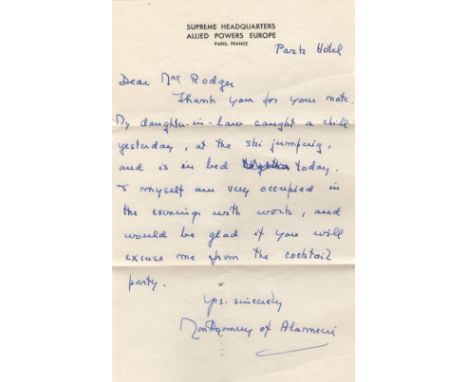 SUPREME HEADQUARTERS
ALLIED POWERS EUROPE
PARIS, FRANCE
Park Hotel
Dear Mrs Rodger
Thank you for your note.
My daughter-in-law caught a chill
yesterday, at the ski jumping,
and is in bed today.
I myself am very occupied in
the evenings with work, and
would be glad if you will
excuse me from the cocktail
party.
Yrs. sincerely
Montgomery of Alamein